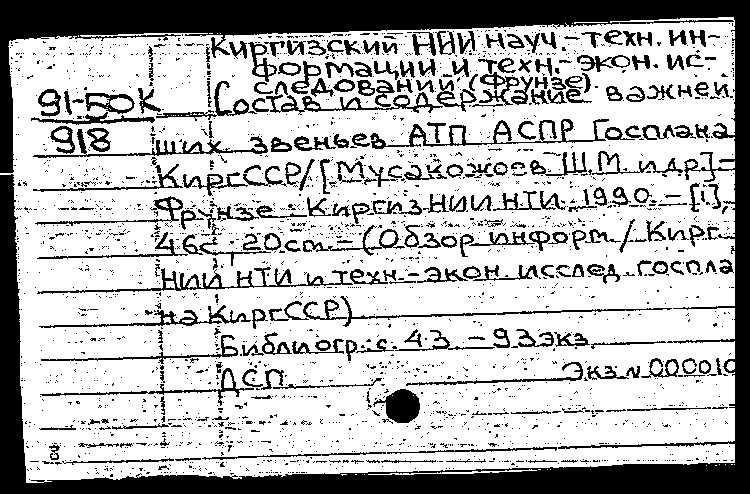 Киргизский НИИ науч.-техн. ин-
формации и техн.-экон. ис-
следований (Фрунзе).
91-50К
918
Состав и содержание важней
ших звеньев АТП АСПР Госплана
КиргССР/[Мусакожоев Ш.М. и др]=
Фрунзе: КиргизНИИНТИ, 1990.-[1],
46с.; 20см.-(Обзор информ./Кирг.
НИИ НТИ и техн.-экон. исслед. госпла
на КиргССР)
Библиогр.: с. 43. - 93 экз.
ДСП. Экз № 000010